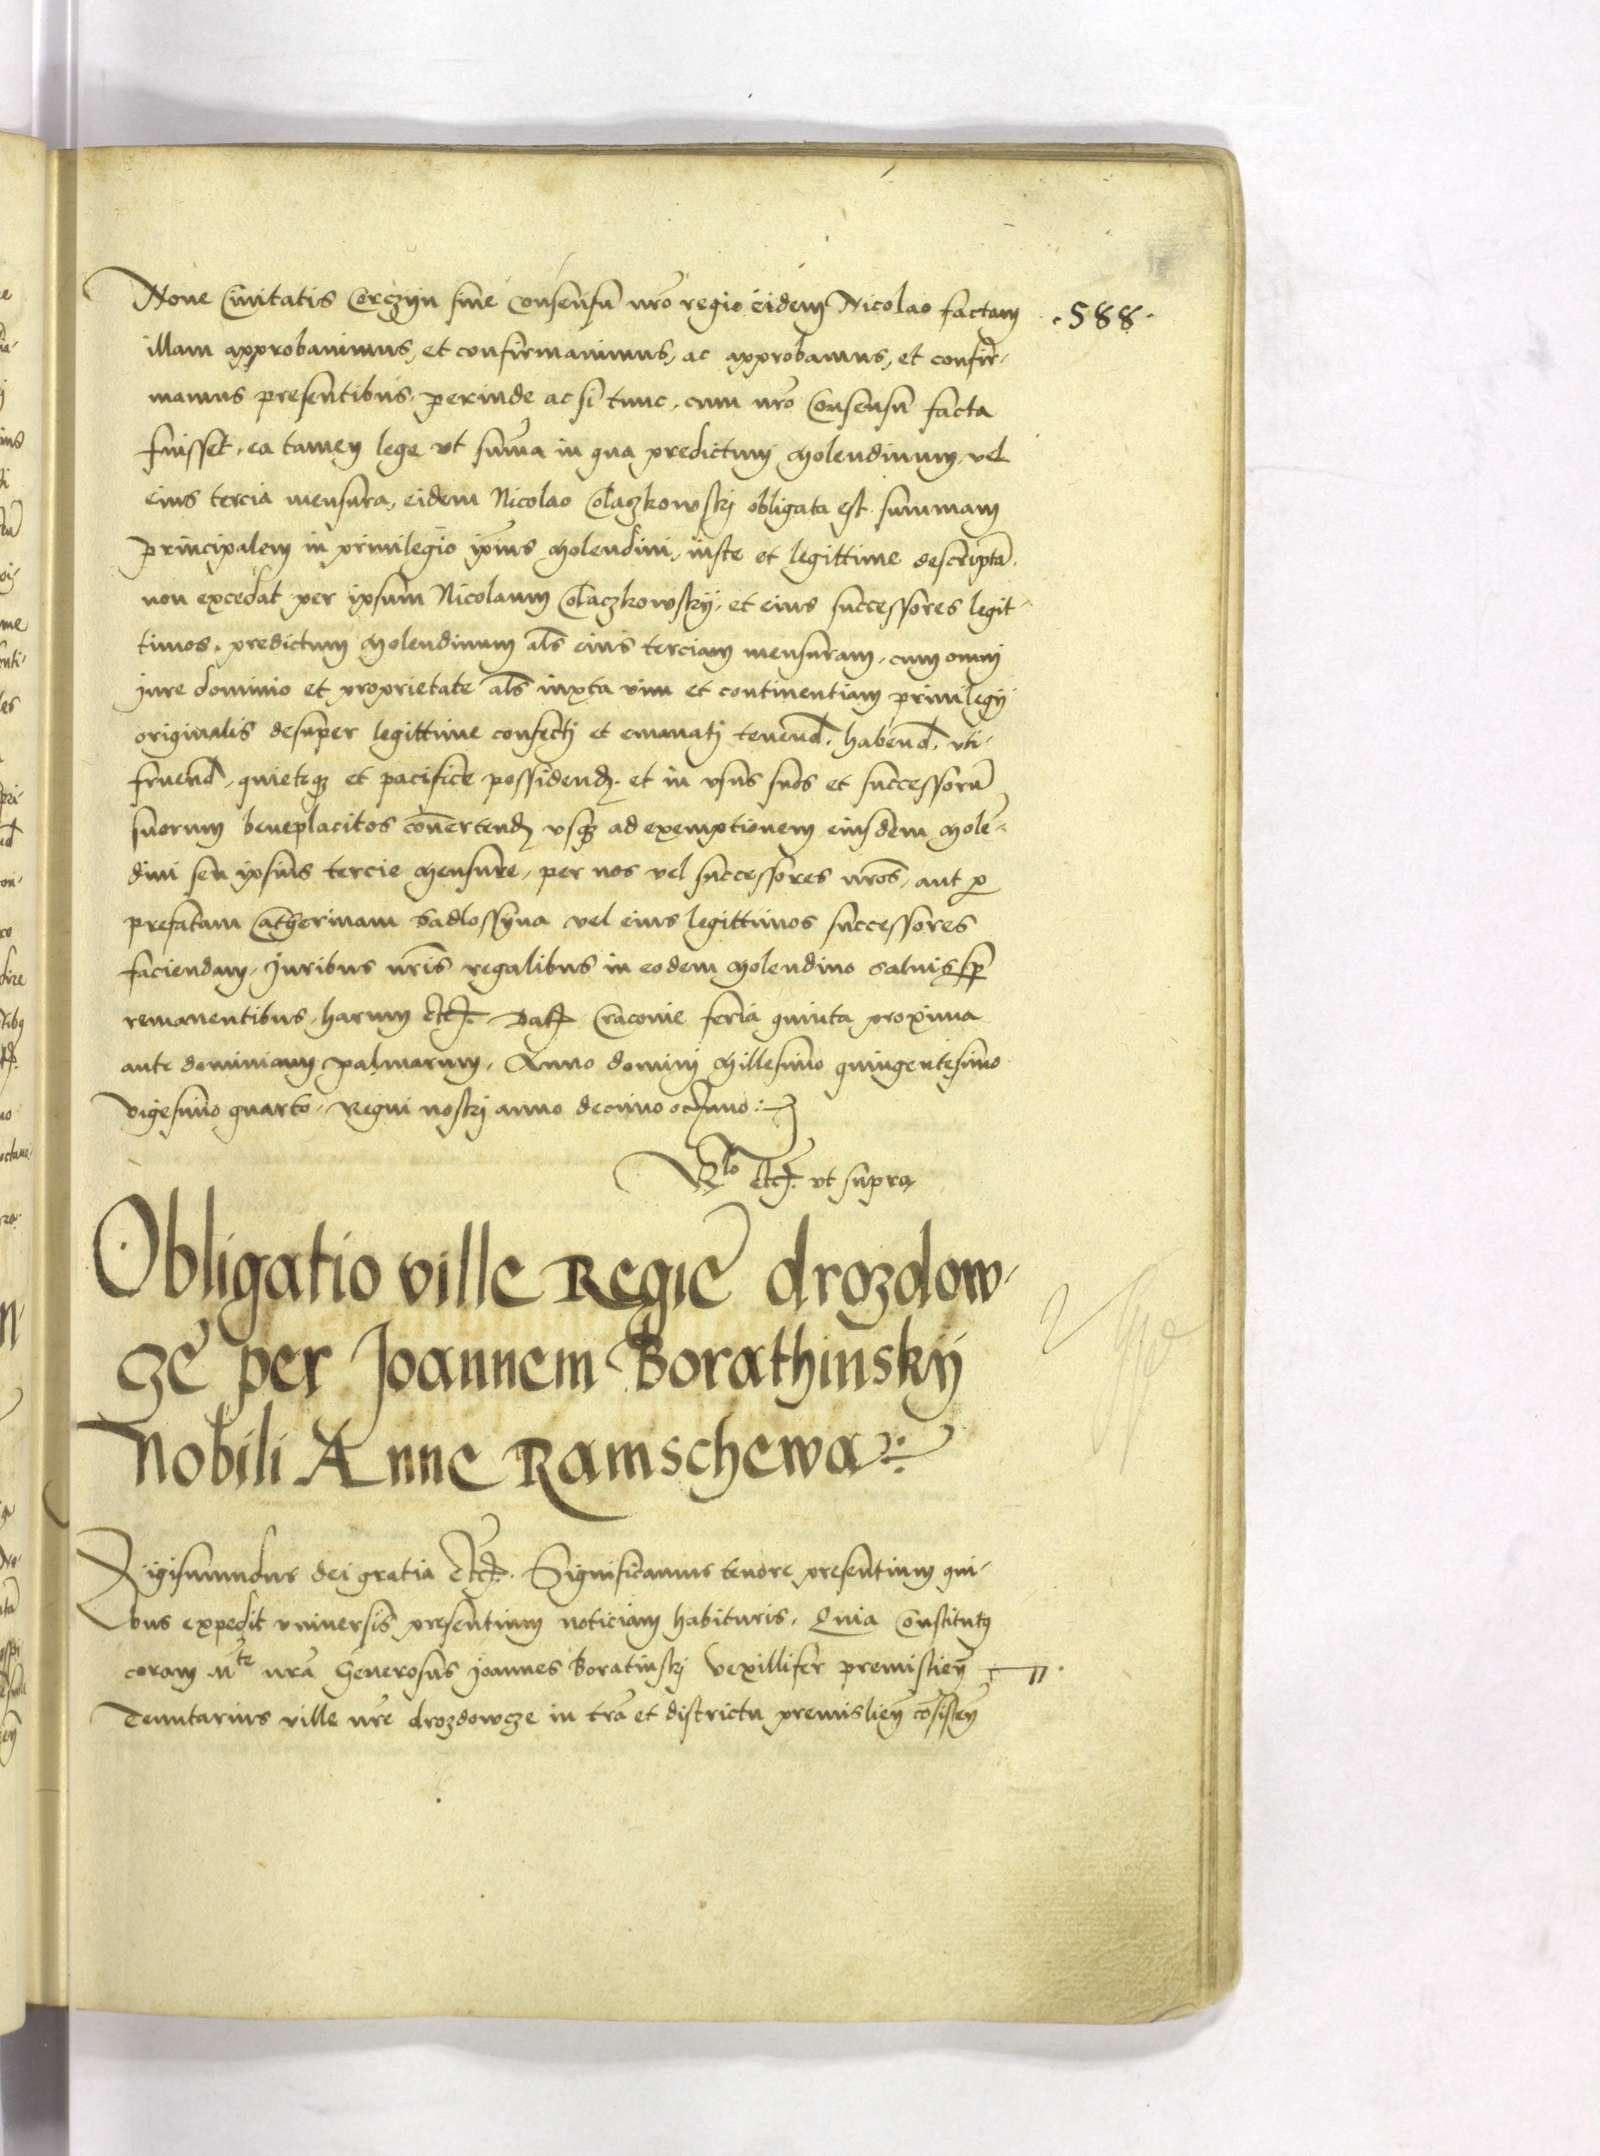 Nove Civitatis Corczijn sine Consensu nro regio eidem Nicolao factam
.588.
illam approbavimus, et confirmavimus, ac approbamus, et confir-
mamus presentibus, perinde ac si tunc, cum nro Consensu facta
fuisset, ea tamen lege ut suma in qua predictum Molendinum, vel
eius tercia mensura, eidem Nicolao Colaczkowskj obligata est summam
principalem in privilegio ipius Molendini, iuste et legittime descripta.
non excedat per ipsum Nicolaum Colaczkowskij, et eius successores legit-
timos, predictum Molendinum als eius terciam mensuram, cum omnj
jure dominio et proprietate als iuxta vim et continentiam privilegij
originalis desuper legittime confectj et emanatj tenend, habend, uti-
fruend, quieteq et pacifice possidend, et in usus suos et successoru
suorum beneplacitos convertend usq ad exemptionem eiusdem Mole-
dini seu ipsius tercie Mensure, per nos vel successores nros, aut p
prefatam Catherinam Badlossijna vel eius legittimos successores
faciendam, Juribus nris regalibus in eodem Molendino salvis sp
remanentibus, harum etc. Dat Cracovie feria quinta proxima
ante dominicam palmarum, Anno dominj Millesimo quingentesimo
vigesimo quarto, Regni nostrj anno decimo octavo:
Rlo etc. ut supra
Obligatio ville Regie drozdow-
cze per Joannem Borathinskij
Nobili Anne Ramschewa
Sigismundus dei gratia etc. Significamus tenore presentium qui-
bus expedit universis presentium noticiam habituris, Quia Constitutq
coram Mte nra Generosus Joannes Boratinskj Vexillifer premislien
Tenutarius ville nre drozdowcze in tra et districtu premislien cosisten